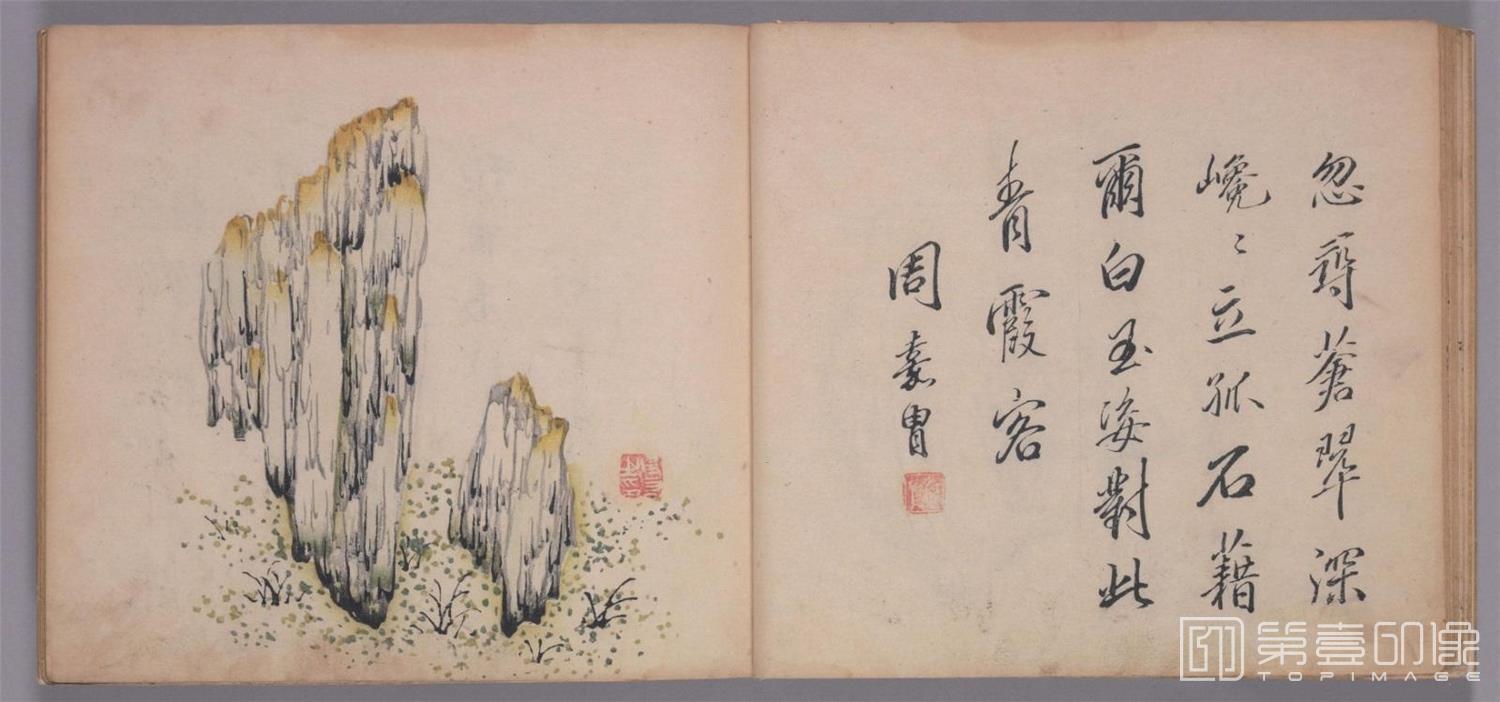 忽尋蒼翠深
巉〻立孤石藉
爾白玉姿對此
青霞客
周嘉冑
第壹印像
TOPIMAGE